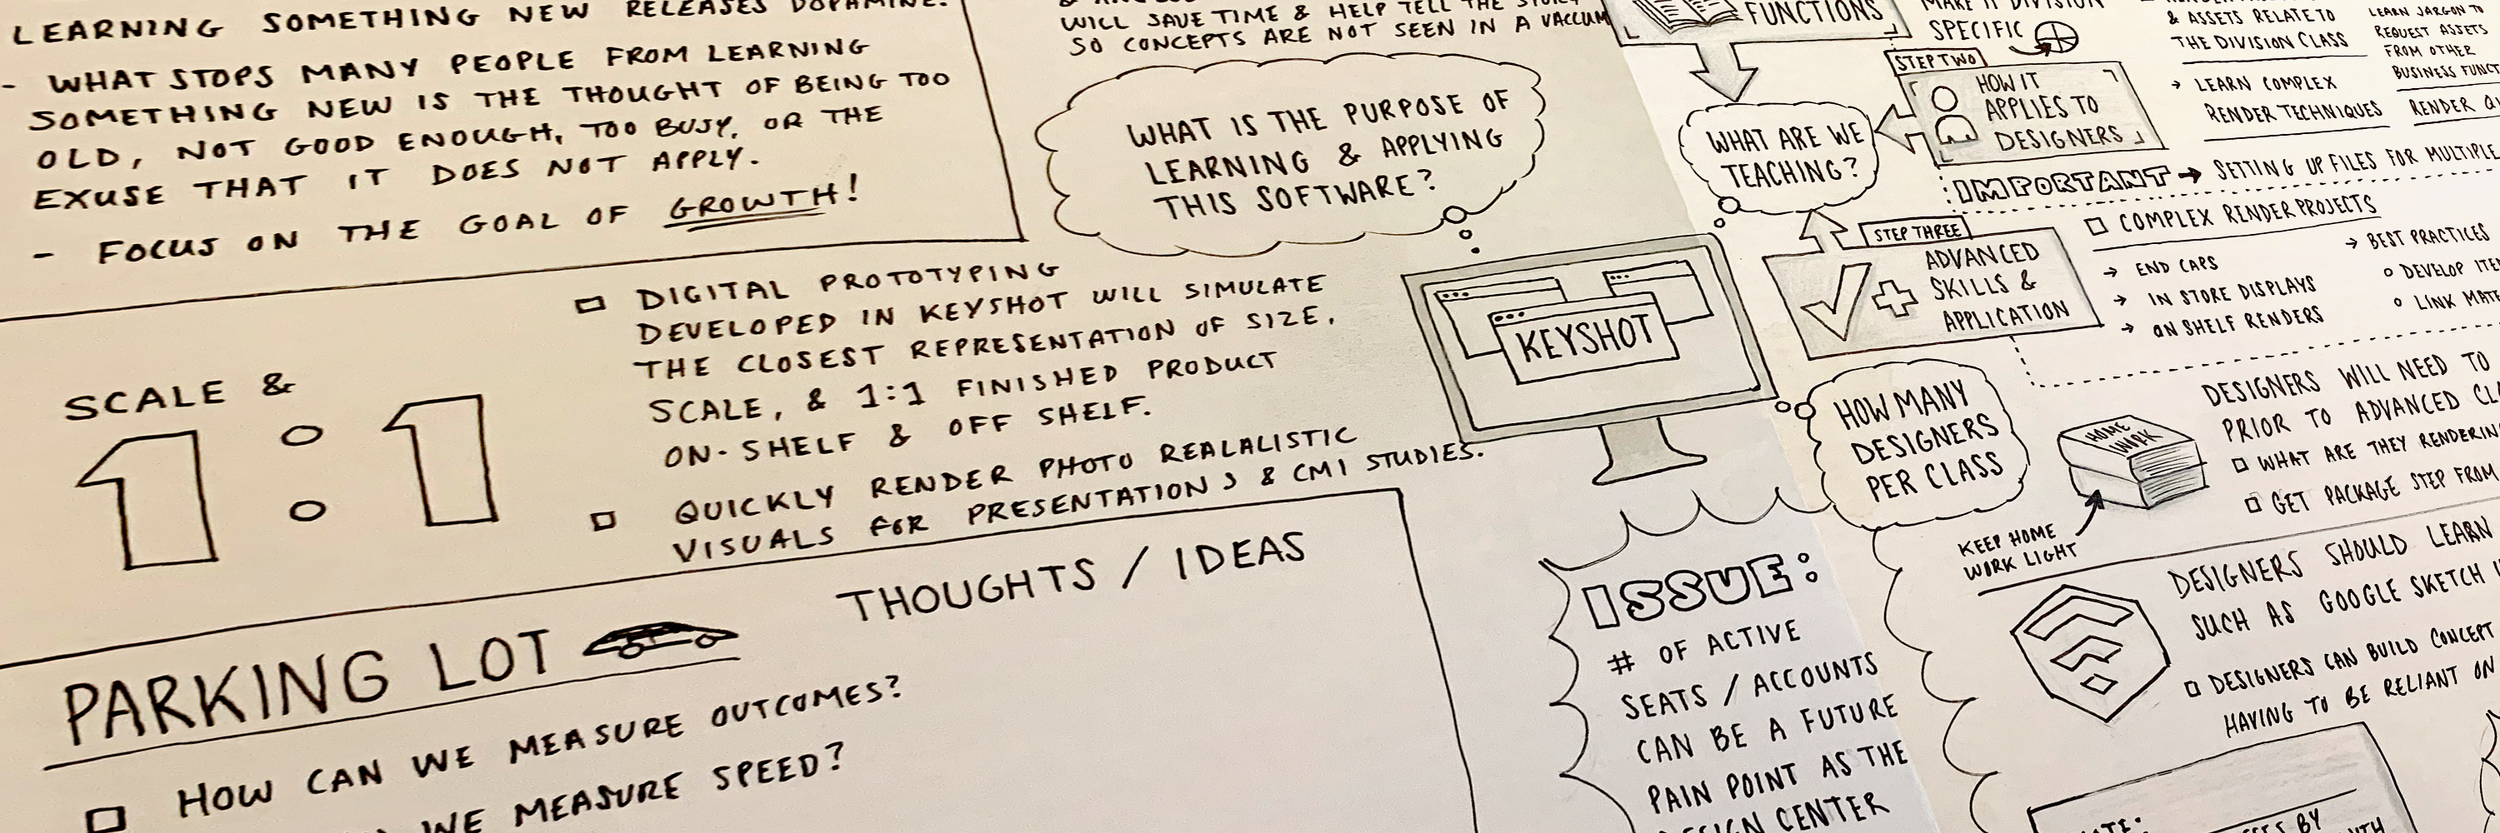 LEARNING SOMETHING NEW RELEASES DOPAMINE.
- WHAT STOPS MANY PEOPLE FROM LEARNING
SOMETHING NEW IS THE THOUGHT OF BEING TOO
OLD, NOT GOOD ENOUGH, TOO BUSY, OR THE
EXUSE THAT IT DOES NOT APPLY.
- FOCUS ON THE GOAL OF GROWTH!
WILL SAVE TIME & HELP TELL THE STORY
SO CONCEPTS ARE NOT SEEN IN A VACCUM
WHAT IS THE PURPOSE OF
LEARNING & APPLYING
THIS SOFTWARE?
KEYSHOT
SCALE &
1:1
DIGITAL PROTOTYPING
DEVELOPED IN KEYSHOT WILL SIMULATE
THE CLOSEST REPRESENTATION OF SIZE,
SCALE, & 1:1 FINISHED PRODUCT
ON-SHELF & OFF SHELF.
QUICKLY RENDER PHOTO REALALISTIC
VISUALS FOR PRESENTATIONS & CMI STUDIES.
PARKING LOT
THOUGHTS / IDEAS
HOW CAN WE MEASURE OUTCOMES?
WE MEASURE SPEED?
FUNCTIONS
MAKE IT DIVISION
SPECIFIC
STEP TWO
HOW IT
APPLIES TO
DESIGNERS
WHAT ARE WE
TEACHING?
& ASSETS RELATE TO
THE DIVISION CLASS
→ LEARN COMPLEX
RENDER TECHNIQUES
LEARN JARGON TO
REQUEST ASSETS
FROM OTHER
BUSINESS
RENDER
IMPORTANT → SETTING UP FILES FOR MULTIPLE
STEP THREE
ADVANCED
SKILLS &
APPLICATION
COMPLEX RENDER PROJECTS
→ END CAPS
→ IN STORE DISPLAYS
→ ON SHELF RENDERS
→ BEST PRACTICES
DEVELOP
LINK
HOW MANY
DESIGNERS
PER CLASS
DESIGNERS WILL NEED TO
PRIOR TO ADVANCED
WHAT ARE THEY RENDERING
GET PACKAGE STEP FROM
HOME
WORK
KEEP HOME
WORK LIGHT
DESIGNERS SHOULD LEARN
SUCH AS GOOGLE SKETCH
DESIGNERS CAN BUILD CONCEPT
HAVING TO BE RELIANT ON
ISSUE:
# OF ACTIVE
SEATS / ACCOUNTS
CAN BE A FUTURE
PAIN POINT AS THE
DESIGN CENTER
BY